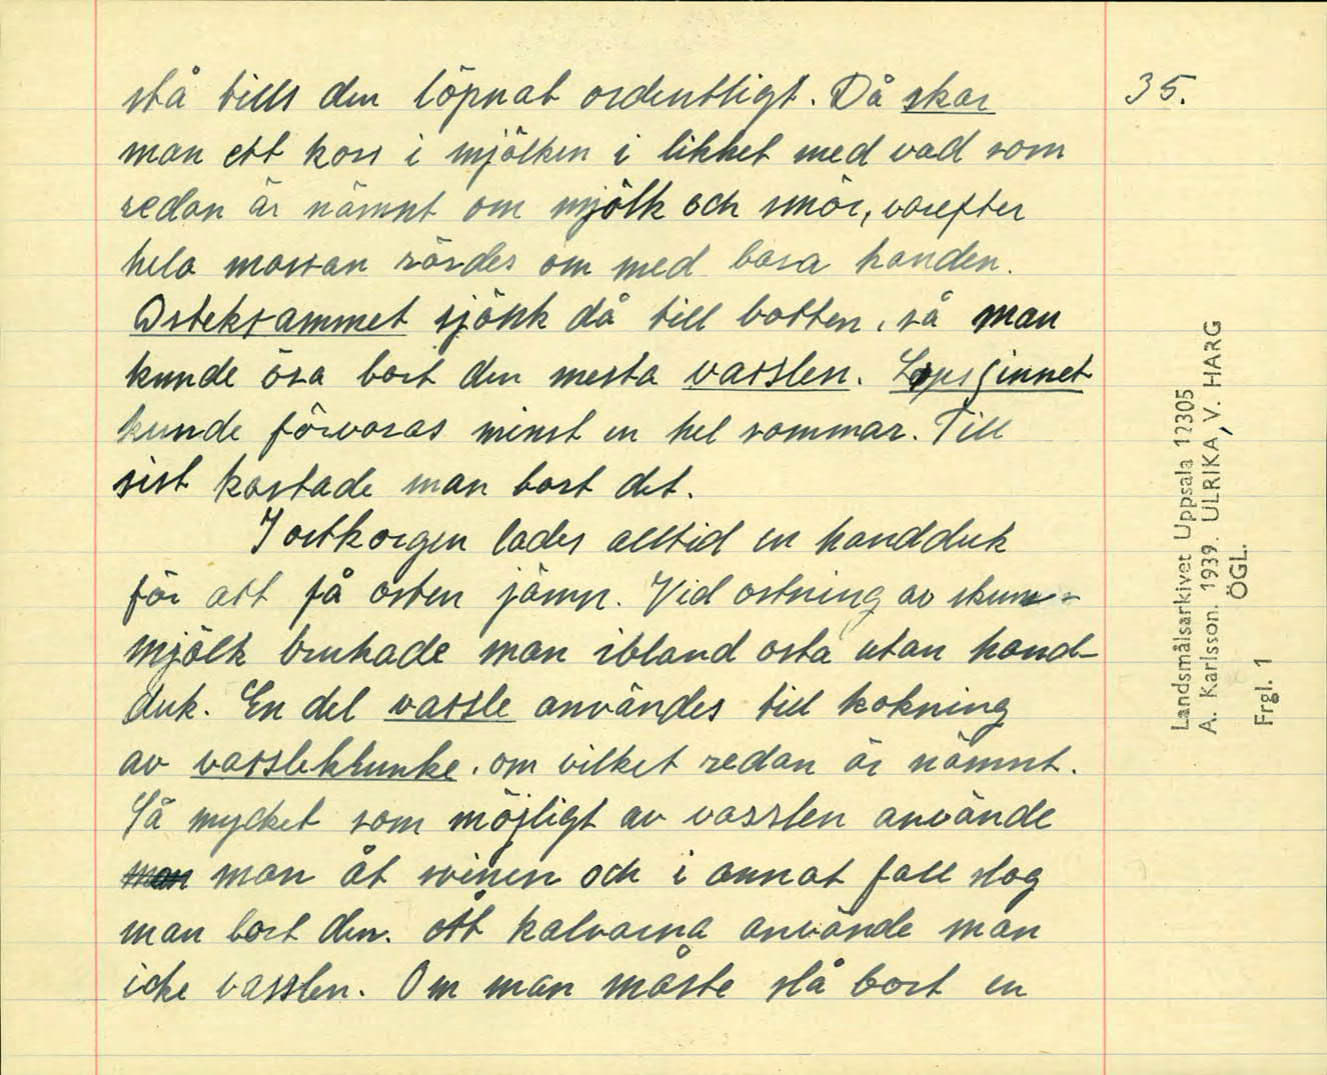 35.
stå tills den löpnat ordentligt. Då skar
man ett kors i mjölken i likhet med vad som
redan är nämnt om mjölk och smör, varefter
hela massan rördes om med bara handen.
Ostekrammet sjönk då till botten, så man
kunde ösa bort den mesta vasslen. Löpsinnet
kunde förvaras minst en hel sommar. Till
sist kastade man bort det.
I ostkorgen lades alltid en handduk
för att få osten jämn. Vid ostning av skum-
mjölk brukade man ibland osta utan hand-
duk. En del vassle användes till kokning
av vassleklunke, om vilket redan är nämnt.
Så mycket som möjligt av vasslen använde
man man åt svinen och i annat fall slog
man bort den. Åt kalvarna använde man
icke vasslen. Om man måste slå bort en
Landsmålsarkivet Uppsala 12305
A. Karlsson. 1939. ULRIKA, V. HARG
ÖGL.
Frgl. 1